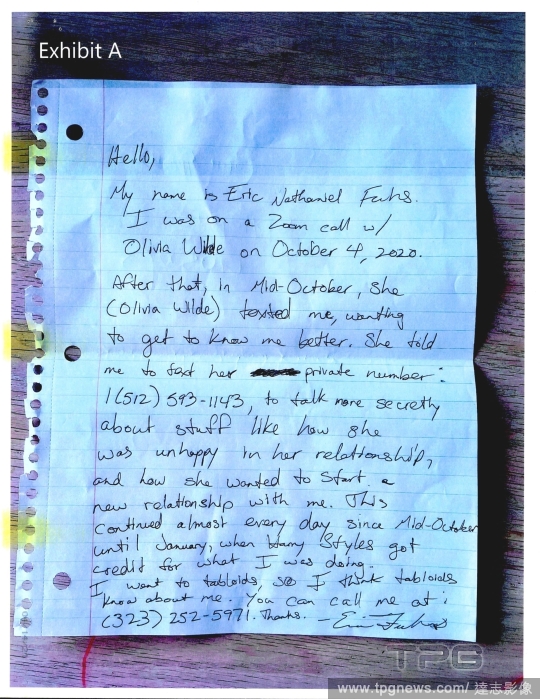 Exhibit A
Hello,
My name is Eric Nathaniel Fuhs.
I was on a Zoom call w/
Olivia Wilde on October 4, 2020.
After that, in Mid-October, she
(Olivia Wilde) texted me, wanting
to get to know me better. She told
me to text her private number:
1(512) 593-1143, to talk more secretly
about stuff like how she
was unhappy in her relationship,
and how she wanted to start a
new relationship with me. This
continued almost every day since Mid-October
until January, when Harry Styles got
credit for what I was doing.
I went to tabloids, so I think tabloids
know about me. You can call me at:
(323) 252-5971. Thanks.
TPG
www.tpgnews.com/達志影像